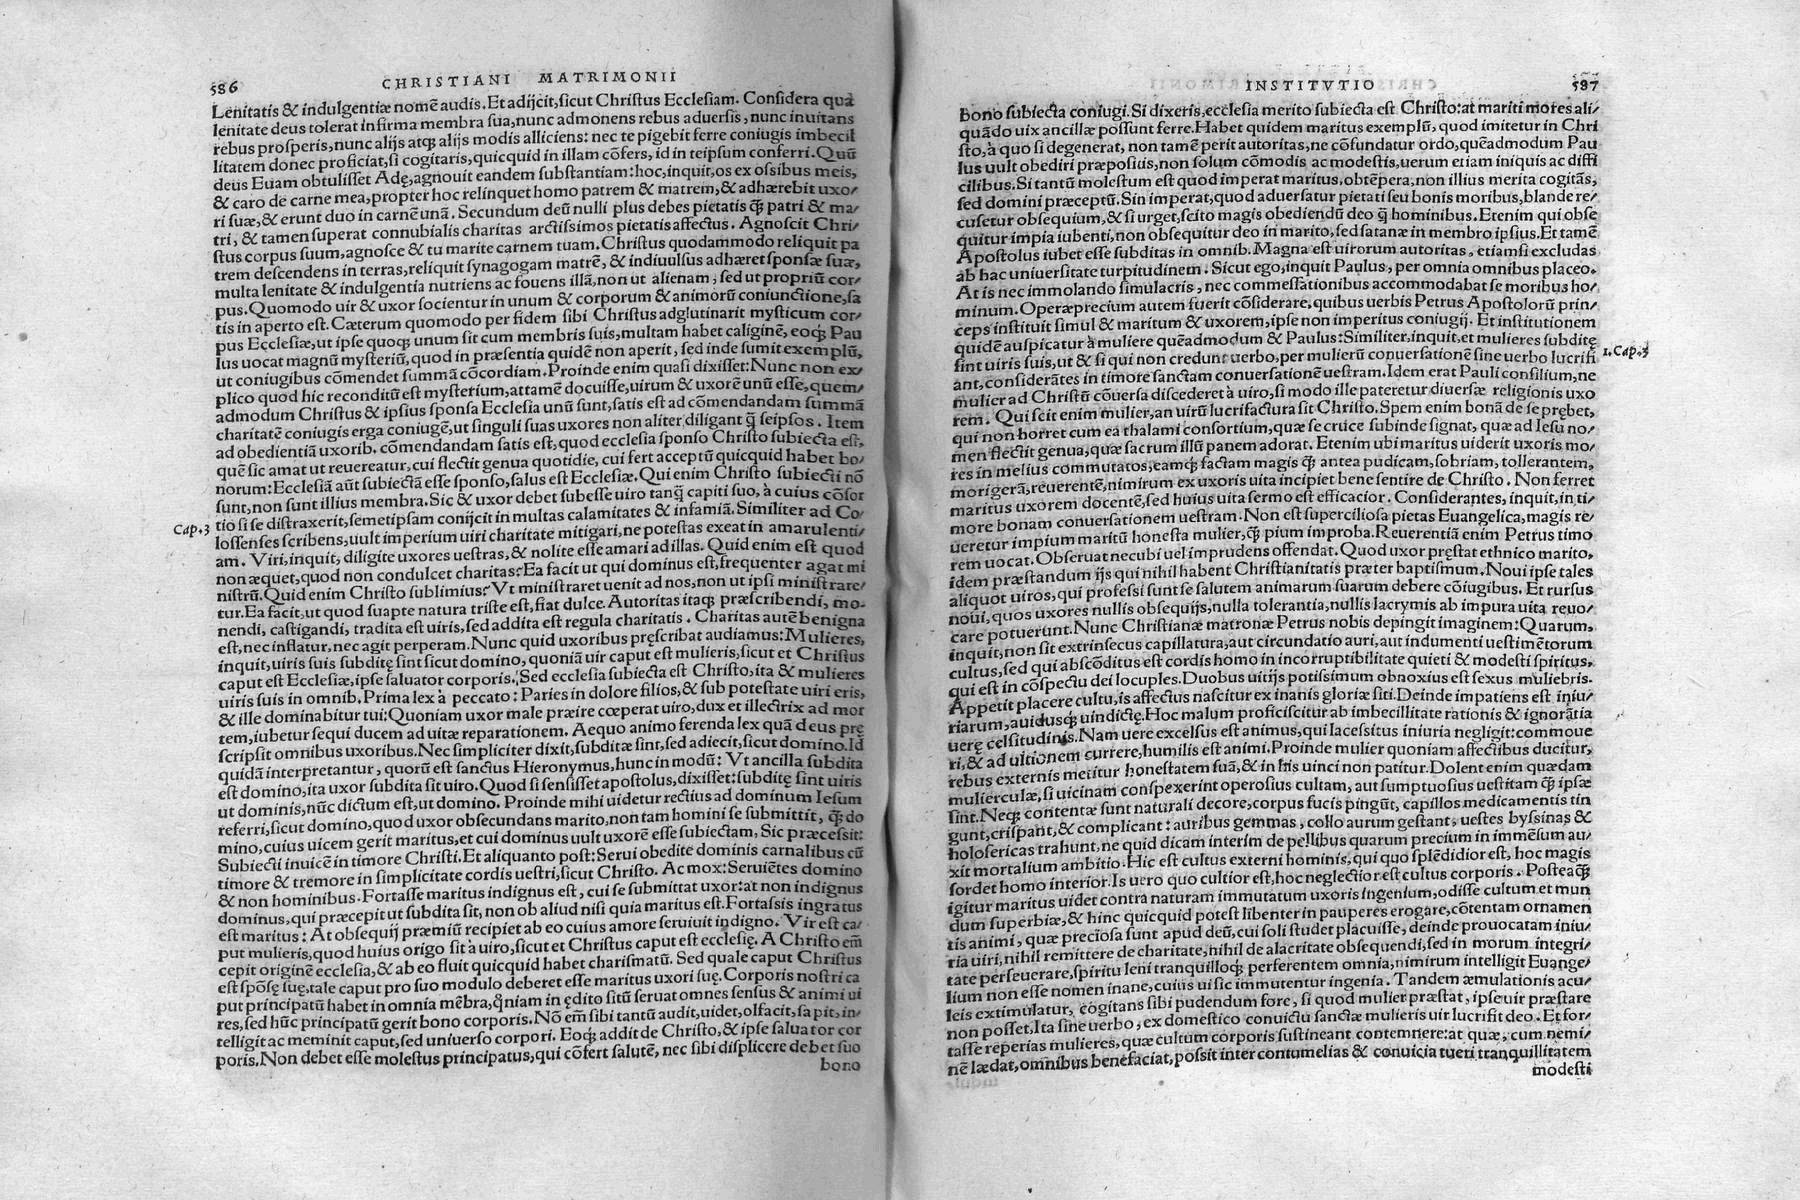 586
CHRISTIANI MATRIMONII
Lenitatis & indulgentiæ nomē audis. Et adijcit, sicut Christus Ecclesiam. Considera quā
lenitate deus tolerat infirma membra sua, nunc admonens rebus aduersis, nunc inuitans
rebus prosperis, nunc alijs atqꝫ alijs modis alliciens: nec te pigebit ferre coniugis imbecil
litatem donec proficiat, si cogitaris, quicquid in illam cōfers, id in teipsum conferri. Quū
deus Euam obtulisset Adę, agnouit eandem substantiam: hoc, inquit, os ex ossibus meis,
& caro de carne mea, propter hoc relinquet homo patrem & matrem, & adhærebit uxo/
ri suæ, & erunt duo in carnē unā. Secundum deū nulli plus debes pietatis ꝙ̃ patri & ma/
tri, & tamen superat connubialis charitas arctissimos pietatis affectus. Agnoscit Chri/
stus corpus suum, agnosce & tu marite carnem tuam. Christus quodammodo reliquit pa
trem descendens in terras, reliquit synagogam matrē, & indiuulsus adhæret sponsæ suæ,
multa lenitate & indulgentia nutriens ac fouens illā, non ut alienam, sed ut propriū cor/
pus. Quomodo uir & uxor socientur in unum & corporum & animorū coniunctione, sa
tis in aperto est. Cæterum quomodo per fidem sibi Christus adglutinarit mysticum cor/
pus Ecclesiæ, ut ipse quoqꝫ unum sit cum membris suis, multam habet caliginē, eoqꝫ Pau
lus uocat magnū mysteriū, quod in præsentia quidē non aperit, sed inde sumit exemplū,
ut coniugibus cōmendet summā cōcordiam. Proinde enim quasi dixisset: Nunc non ex/
plico quod hic reconditū est mysterium, attamē docuisse, uirum & uxorē unū esse, quem/
admodum Christus & ipsius sponsa Ecclesia unū sunt, satis est ad cōmendandam summā
charitatē coniugis erga coniugē, ut singuli suas uxores non aliter diligant q̃ seipsos. Item
ad obedientiā uxorib. cōmendandam satis est, quod ecclesia sponso Christo subiecta est,
quē sic amat ut reuereatur, cui flectit genua quotidie, cui fert acceptū quicquid habet bo/
norum: Ecclesiā aūt subiectā esse sponso, salus est Ecclesiæ. Qui enim Christo subiecti nō
sunt, non sunt illius membra. Sic & uxor debet subesse uiro tanq̃ capiti suo, à cuius cōsor
tio si se distraxerit, semetipsam conijcit in multas calamitates & infamiā. Similiter ad Co/
Cap. 3
lossenses scribens, uult imperium uiri charitate mitigari, ne potestas exeat in amarulenti/
am. Viri, inquit, diligite uxores uestras, & nolite esse amari ad illas. Quid enim est quod
non æquet, quod non condulcet charitas? Ea facit ut qui dominus est, frequenter agat mi
nistrū. Quid enim Christo sublimius? Vt ministraret uenit ad nos, non ut ipsi ministrare/
tur. Ea facit, ut quod suapte natura triste est, fiat dulce. Autoritas itaqꝫ præscribendi, mo-
nendi, castigandi, tradita est uiris, sed addita est regula charitatis. Charitas autē benigna
est, nec inflatur, nec agit perperam. Nunc quid uxoribus pręscribat audiamus: Mulieres,
inquit, uiris suis subditę sint sicut domino, quoniā uir caput est mulieris, sicut et Christus
caput est Ecclesiæ, ipse saluator corporis. Sed ecclesia subiecta est Christo, ita & mulieres
uiris suis in omnib. Prima lex à peccato: Paries in dolore filios, & sub potestate uiri eris,
& ille dominabitur tui: Quoniam uxor male præire cœperat uiro, dux et illectrix ad mor
tem, iubetur sequi ducem ad uitæ reparationem. Aequo animo ferenda lex quā deus pre
scripsit omnibus uxoribus. Nec simpliciter dixit, subditæ sint, sed adiecit, sicut domino. Id
quidā interpretantur, quorū est sanctus Hieronymus, hunc in modū: Vt ancilla subdita
est domino, ita uxor subdita sit uiro. Quod si sensisset apostolus, dixisset: subditę sint uiris
ut dominis, nūc dictum est, ut domino. Proinde mihi uidetur rectius ad dominum Iesum
referri, sicut domino, quod uxor obsecundans marito, non tam homini se submittit, ꝙ̃ do
mino, cuius uicem gerit maritus, et cui dominus uult uxorē esse subiectam, Sic præcessit:
Subiecti inuicē in timore Christi. Et aliquanto post: Serui obedite dominis carnalibus cū
timore & tremore in simplicitate cordis uestri, sicut Christo. Ac mox: Seruiētes domino
& non hominibus. Fortasse maritus indignus est, cui se submittat uxor: at non indignus
dominus, qui præcepit ut subdita sit, non ob aliud nisi quia maritus est. Fortassis ingratus
est maritus: At obsequij præmiū recipiet ab eo cuius amore seruiuit indigno. Vir est ca/
put mulieris, quod huius origo sit à uiro, sicut et Christus caput est ecclesię. A Christo em̄
cepit originē ecclesia, & ab eo fluit quicquid habet charismatū. Sed quale caput Christus
est spōsę suę, tale caput pro suo modulo deberet esse maritus uxori suę. Corporis nostri ca
put principatū habet in omnia mēbra, q̃niam in ędito sitū seruat omnes sensus & animi ui
res, sed hūc principatū gerit bono corporis. Nō em̄ sibi tantū audit, uidet, olfacit, sapit, in/
telligit ac meminit caput, sed uniuerso corpori. Eoqꝫ addit de Christo, & ipse saluator cor
poris. Non debet esse molestus principatus, qui cōfert salutē, nec sibi displicere debet suo
bono
INSTITVTIO
587
bono subiecta coniugi. Si dixeris, ecclesia merito subiecta est Christo: at mariti mores ali/
quādo uix ancillæ possunt ferre. Habet quidem maritus exemplū, quod imitetur in Chri
sto, à quo si degenerat, non tamē perit autoritas, ne cōfundatur ordo, quēadmodum Pau
lus uult obediri præpositis, non solum cōmodis ac modestis, uerum etiam iniquis ac diffi
cilibus. Si tantū molestum est quod imperat maritus, obtēpera, non illius merita cogitās,
sed domini præceptū. Sin imperat, quod aduersatur pietati seu bonis moribus, blande re/
cusetur obsequium, & si urget, scito magis obediendū deo q̃ hominibus. Etenim qui obse
quitur impia iubenti, non obsequitur deo in marito, sed satanæ in membro ipsius. Et tamē
Apostolus iubet esse subditas in omnib. Magna est uirorum autoritas, etiamsi excludas
ab hac uniuersitate turpitudinem. Sicut ego, inquit Paulus, per omnia omnibus placeo.
At is nec immolando simulacris, nec commessationibus accommodabat se moribus ho/
minum. Operæprecium autem fuerit cōsiderare, quibus uerbis Petrus Apostolorū prin/
ceps instituit simul & maritum & uxorem, ipse non imperitus coniugij. Et institutionem
quidē auspicatur à muliere quēadmodum & Paulus: Similiter, inquit, et mulieres subditę
1. Cap. 3
sint uiris suis, ut & si qui non credunt uerbo, per mulierū conuersationē sine uerbo lucrifi
ant, considerātes in timore sanctam conuersationē uestram. Idem erat Pauli consilium, ne
mulier ad Christū cōuersa discederet à uiro, si modo ille pateretur diuersæ religionis uxo
rem. Qui scit enim mulier, an uirū lucrifactura sit Christo. Spem enim bonā de se prębet,
qui non horret cum ea thalami consortium, quæ se cruce subinde signat, quæ ad Iesu no/
men flectit genua, quæ sacrum illū panem adorat. Etenim ubi maritus uiderit uxoris mo/
res in melius commutatos, eamqꝫ factam magis ꝙ̃ antea pudicam, sobriam, tollerantem,
morigerā, reuerentē, nimirum ex uxoris uita incipiet bene sentire de Christo. Non ferret
maritus uxorem docentē, sed huius uita sermo est efficacior. Considerantes, inquit, in ti/
more bonam conuersationem uestram. Non est superciliosa pietas Euangelica, magis re/
ueretur impium maritū honesta mulier, ꝙ̃ pium improba. Reuerentiā enim Petrus timo
rem uocat. Obseruat necubi uel imprudens offendat. Quod uxor pręstat ethnico marito,
idem præstandum ijs qui nihil habent Christianitatis præter baptismum. Noui ipse tales
aliquot uiros, qui professi sunt se salutem animarum suarum debere cōiugibus. Et rursus
noui, quos uxores nullis obsequijs, nulla tolerantia, nullis lacrymis ab impura uita reuo/
care potuerunt. Nunc Christianæ matronæ Petrus nobis depingit imaginem: Quarum,
inquit, non sit extrinsecus capillatura, aut circundatio auri, aut indumenti uestimētorum
cultus, sed qui abscōditus est cordis homo in incorruptibilitate quieti & modesti spiritus,
qui est in cōspectu dei locuples. Duobus uitijs potissimum obnoxius est sexus muliebris.
Appetit placere cultu, is affectus nascitur ex inanis gloriæ siti. Deinde impatiens est iniu/
riarum, auidusqꝫ uindictę. Hoc malum proficiscitur ab imbecillitate rationis & ignorātia
uerę celsitudinis. Nam uere excelsus est animus, qui lacessitus iniuria negligit: commoue
ri, & ad ultionem currere, humilis est animi. Proinde mulier quoniam affectibus ducitur,
rebus externis metitur honestatem suā, & in his uinci non patitur. Dolent enim quædam
mulierculæ, si uicinam conspexerint operosius cultam, aut sumptuosius uestitam ꝙ̃ ipsæ
sint. Neqꝫ contentæ sunt naturali decore, corpus fucis pingūt, capillos medicamentis tin
gunt, crispant, & complicant: auribus gemmas, collo aurum gestant, uestes byssinas &
holosericas trahunt, ne quid dicam interim de pellibus quarum precium in immēsum au/
xit mortalium ambitio. Hic est cultus externi hominis, qui quo splēdidior est, hoc magis
sordet homo interior. Is uero quo cultior est, hoc neglectior est cultus corporis. Posteaꝙ̃
igitur maritus uidet contra naturam immutatum uxoris ingenium, odisse cultum et mun
dum superbiæ, & hinc quicquid potest libenter in pauperes erogare, cōtentam ornamen
tis animi, quæ preciosa sunt apud deū, cui soli studet placuisse, deinde prouocatam iniu/
ria uiri, nihil remittere de charitate, nihil de alacritate obsequendi, sed in morum integri/
tate perseuerare, spiritu leni tranquilloqꝫ perferentem omnia, nimirum intelligit Euange/
lium non esse nomen inane, cuius ui sic immutentur ingenia. Tandem æmulationis acu/
leis extimulatur, cogitans sibi pudendum fore, si quod mulier præstat, ipse uir præstare
non posset, Ita sine uerbo, ex domestico conuictu sanctæ mulieris uir lucrifit deo. Et for/
tasse reperias mulieres, quæ cultum corporis sustineant contemnere: at quæ, cum nemi/
nē lædat, omnibus benefaciat, possit inter contumelias & conuicia tueri tranquillitatem
modesti